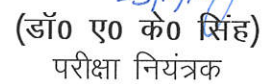 (डॉ0 ए0 के0 सिंह)
परीक्षा नियंत्रक